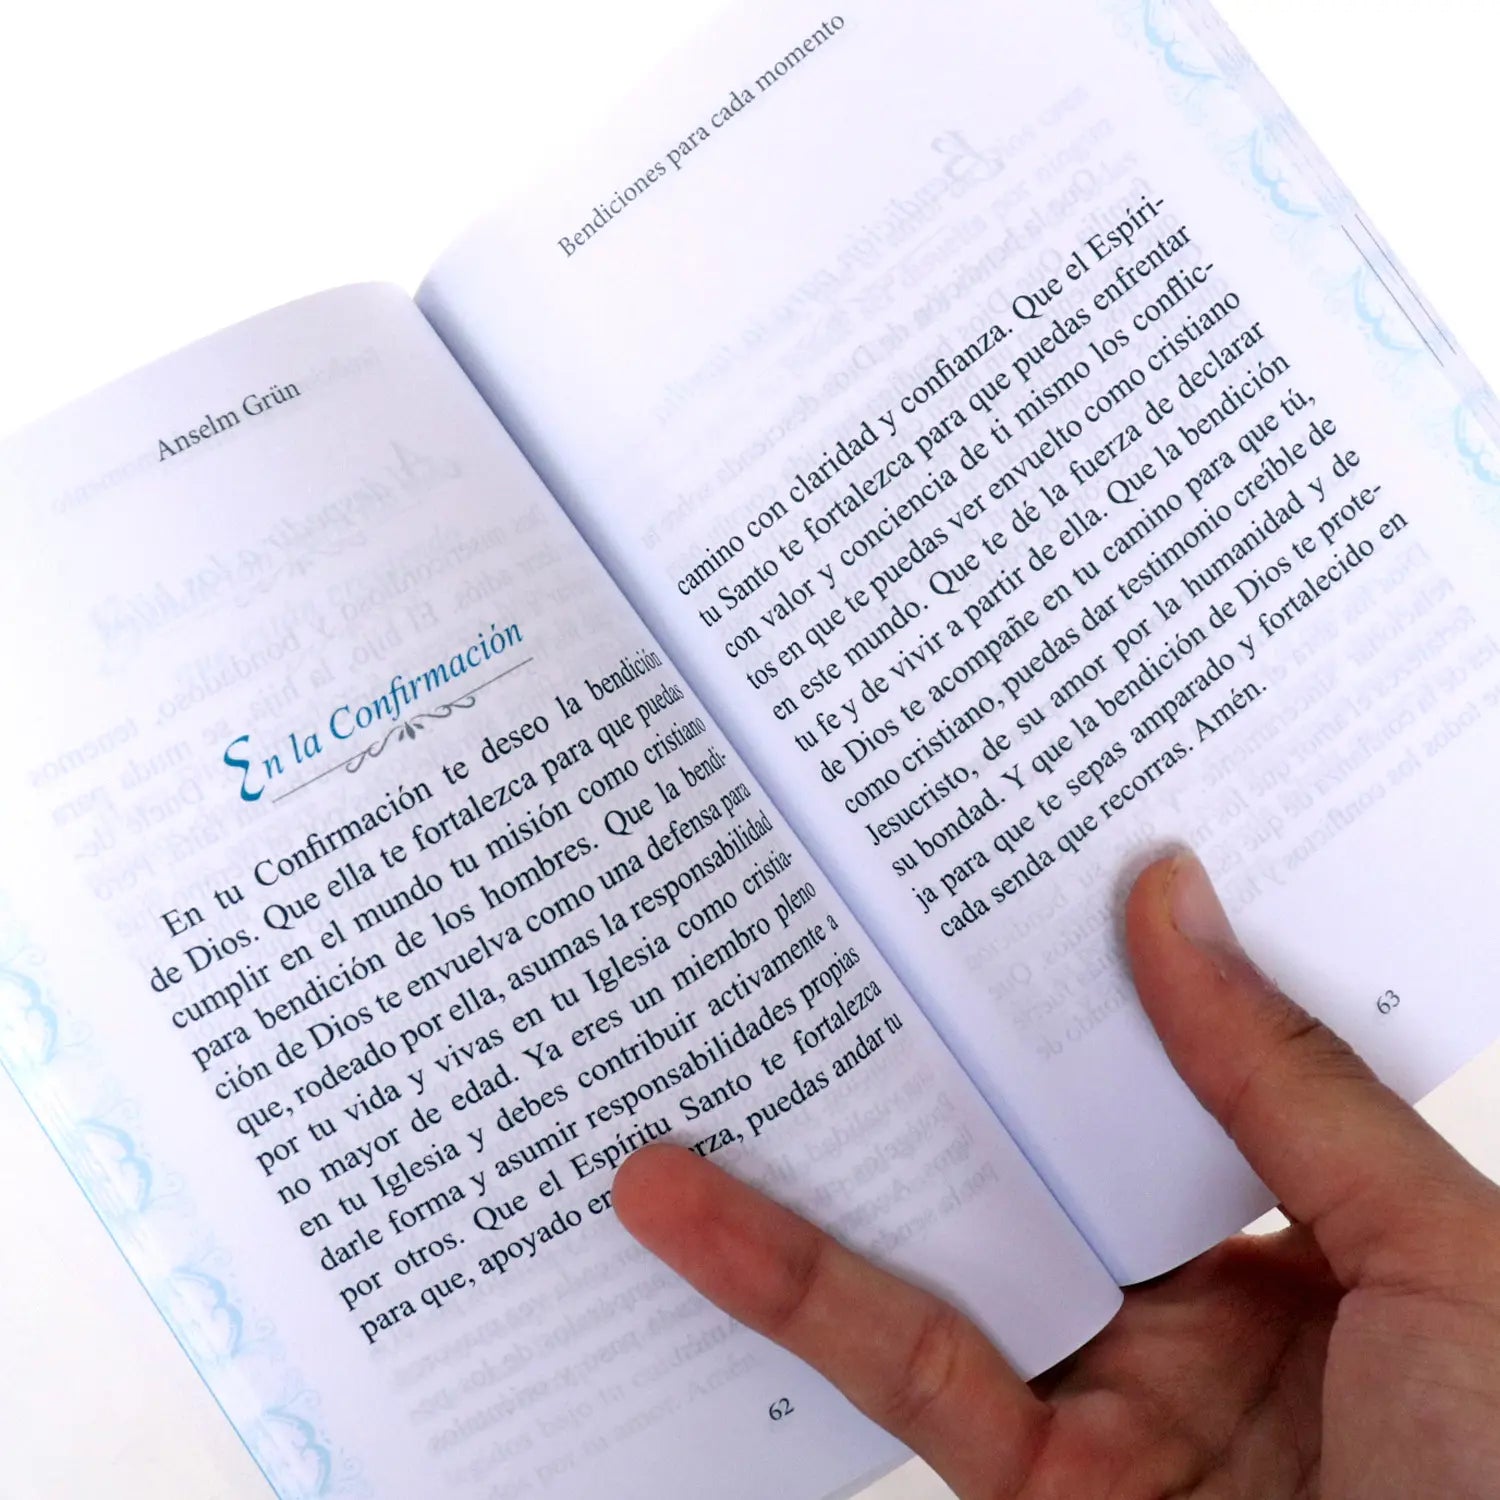 Anselm Grün
En la Confirmación
En tu Confirmación te deseo la bendición
de Dios. Que ella te fortalezca para que puedas
cumplir en el mundo tu misión como cristiano
para bendición de los hombres. Que la bendi-
ción de Dios te envuelva como una defensa para
que, rodeado por ella, asumas la responsabilidad
por tu vida y vivas en tu Iglesia como cristia-
no mayor de edad. Ya eres un miembro pleno
en tu Iglesia y debes contribuir activamente a
darle forma y asumir responsabilidades propias
por otros. Que el Espíritu Santo te fortalezca
para que, apoyado en puedas andar tu
62
Bendiciones para cada momento
camino con claridad y confianza. Que el Espíri-
tu Santo te fortalezca para que puedas enfrentar
con valor y conciencia de ti mismo los conflic-
tos en que te puedas ver envuelto como cristiano
en este mundo. Que te dé la fuerza de declarar
tu fe y de vivir a partir de ella. Que la bendición
de Dios te acompañe en tu camino para que tú,
como cristiano, puedas dar testimonio creíble de
Jesucristo, de su amor por la humanidad y de
su bondad. Y que la bendición de Dios te prote-
ja para que te sepas amparado y fortalecido en
cada senda que recorras. Amén.
63